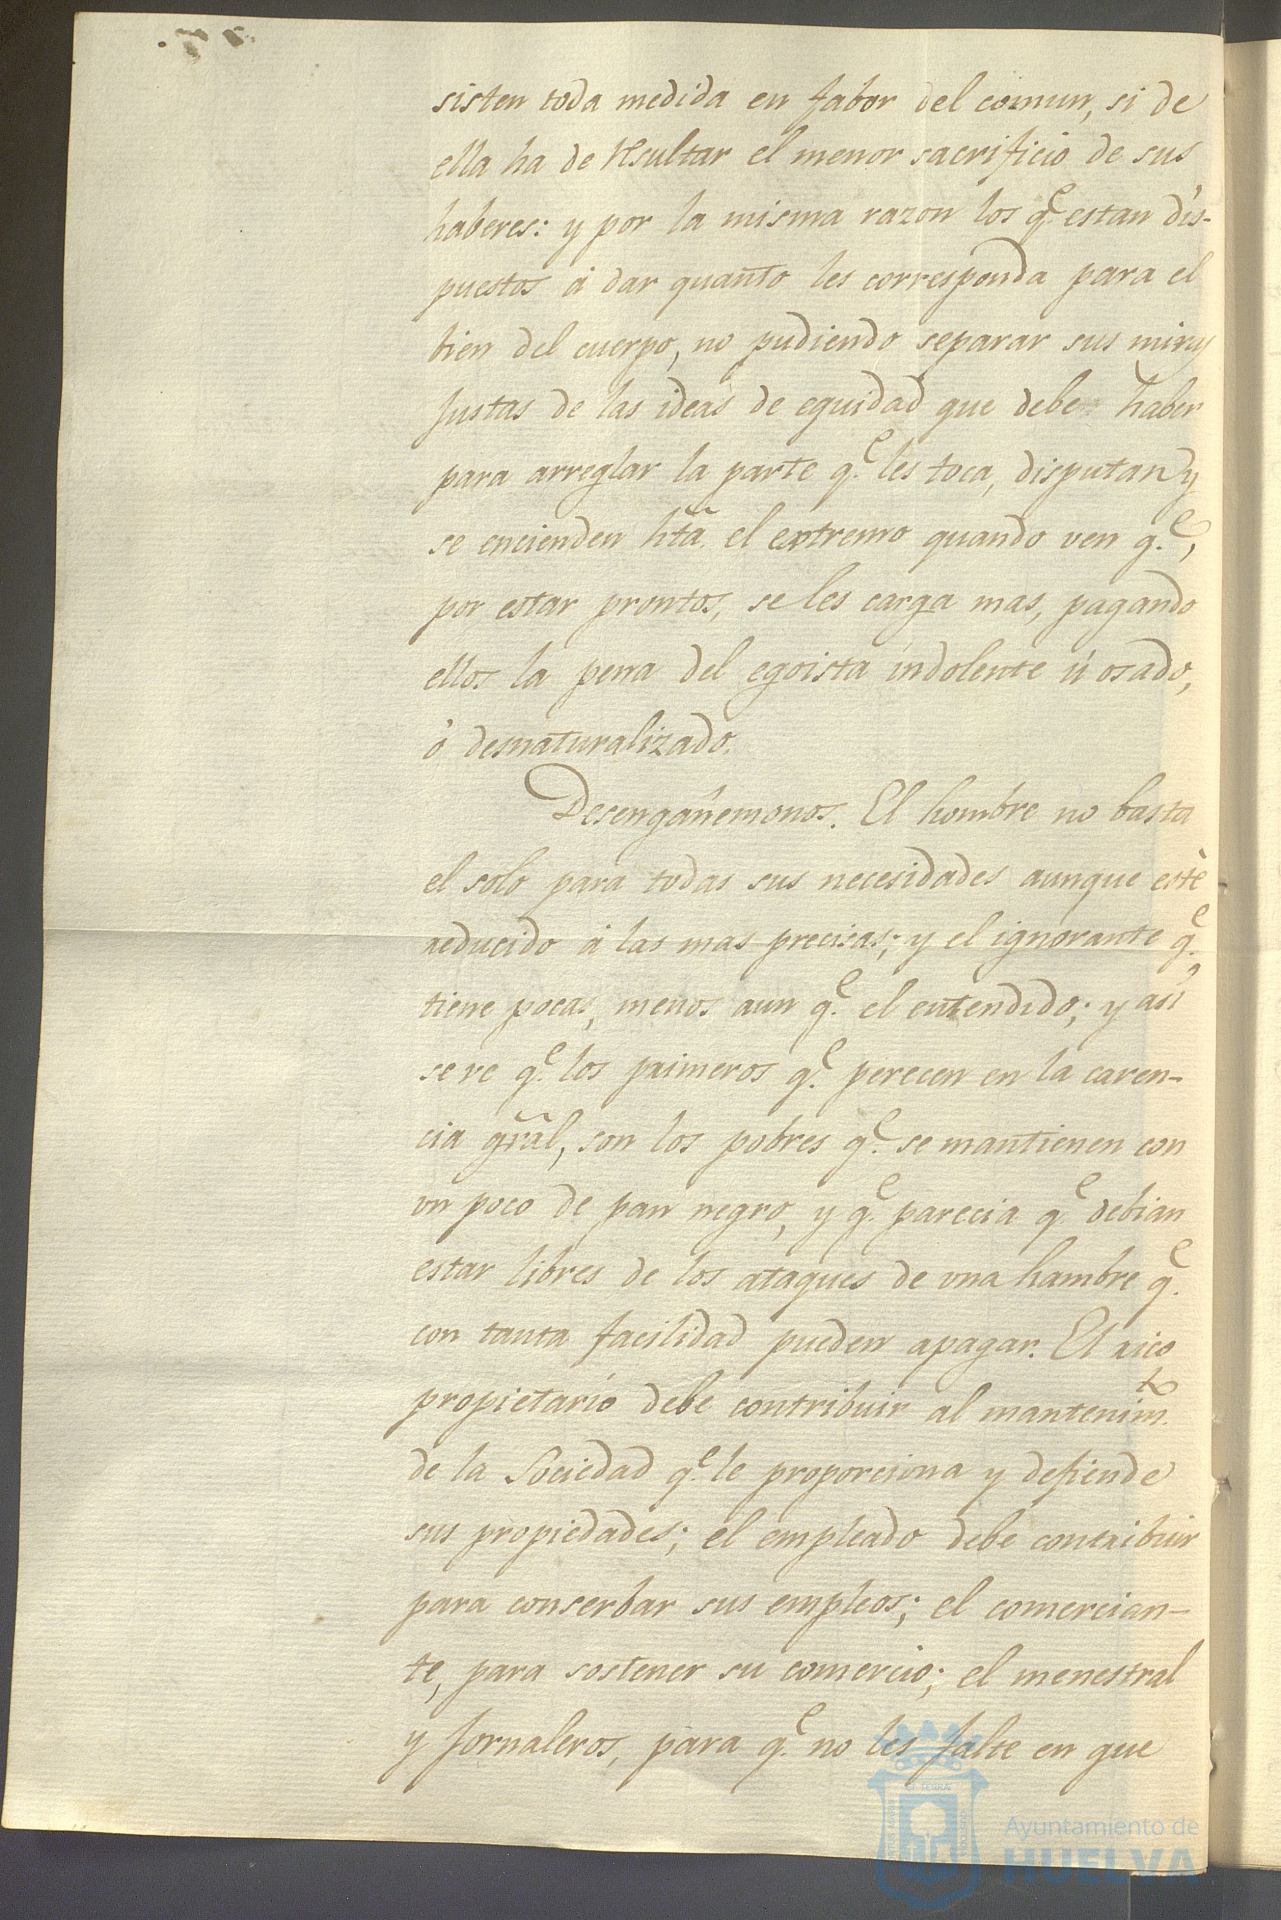 sisten toda medida en fabor del comun, si de
ella ha de resultar el menor sacrificio de sus
haberes: y por la misma razon los q.e estan dis-
puestos á dar quanto les corresponda para el
bien del cuerpo, no pudiendo separar sus miras
justas de las ideas de equidad que debe haber
para arreglar la parte q.e les toca, disputan y
se encienden htã el extremo quando ven q.e,
por estar prontos, se les carga mas, pagando
ellos la pena del egoista indolente ú osado,
ó desnaturalizado.
Desengáñemonos. El hombre no basta
el solo para todas sus necesidades aunque esté
reducido á las mas precisas; y el ignorante q.e
tiene pocas, menos aun q.e el entendido; y asi
se ve q.e los primeros q.e perecen en la caren-
cia grãl, son los pobres q.e se mantienen con
un poco de pan negro, y q.e parecia q.e debian
estar libres de los ataques de una hambre q.e
con tanta facilidad pueden apagar. El rico
propietario debe contribuir al mantenim.to
de la Sociedad q.e le proporciona y defiende
sus propiedades; el empleado debe contribuir
para conserbar sus empleos; el comercian-
te, para sostener su comercio; el menestral
y jornaleros, para q.e no les falte en que
Ayuntamiento de
HUELVA